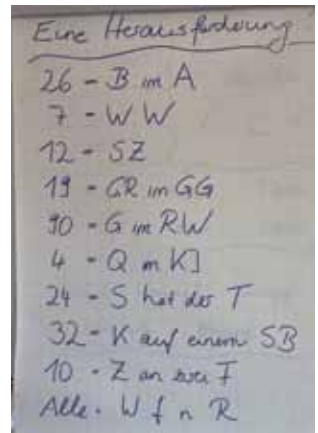 Eine Herausforderung
26 - B im A
7 - W W
12 - SZ
19 - GR im GG
90 - G im RW
4 - Q in KJ
24 - S hat der T
32 - K auf einem SB
10 - Z an zwei F
Alle - W f n R